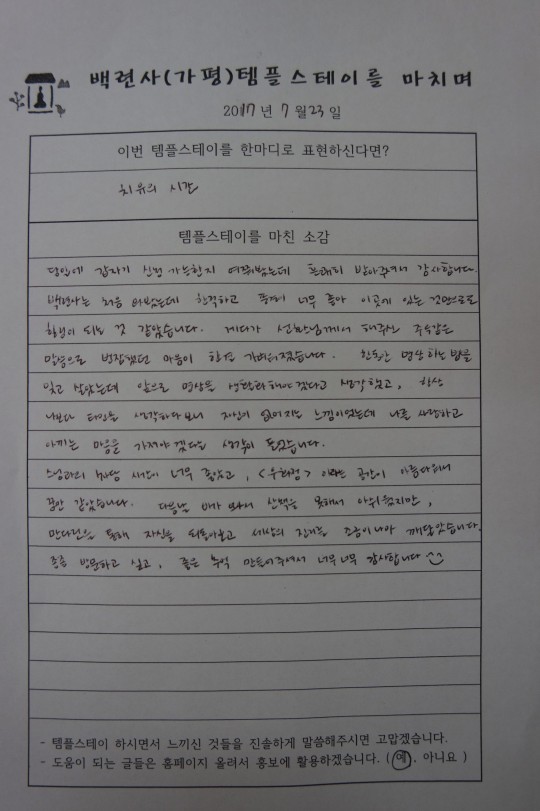 백련사(가평)템플스테이를 마치며
2017년 7월 23일
이번 템플스테이를 한마디로 표현하신다면?
치유의 시간
템플스테이를 마친 소감
당일에 갑자기 신청 가능한지 여쭤봤는데 흔쾌히 받아주셔서 감사합니다.
백련사는 처음 와봤는데 한적하고 풍경이 너무 좋아 이곳에 있는 것만으로도
힐링이 되는 것 같았습니다. 게다가 선화님께서 해주신 주옥같은
말씀으로 번잡했던 마음이 한결 가벼워졌습니다. 한동안 명상하는 법을
잊고 살았는데 앞으로 명상을 생활화해야겠다고 생각했고, 항상
나보다 타인을 생각하다보니 자신이 없어지는 느낌이었는데 나를 사랑하고
아끼는 마음을 가져야겠다는 생각이 들었습니다.
스님과의 차담 시간이 너무 좋았고, 이라는 공간이 아름다워서
꿈만 같았습니다. 다음날 비가 와서 산책을 못해서 아쉬웠지만,
만다라를 통해 자신을 되돌아보고 세상의 진리를 조금이나마 깨달았습니다.
종종 방문하고 싶고, 좋은 추억 만들어주셔서 너무너무 감사합니다
- 템플스테이 하시면서 느끼신 것들을 진솔하게 말씀해주시면 고맙겠습니다.
- 도움이 되는 글들은 홈페이지 올려서 홍보에 활용하겠습니다. ( 예, 아니요 )